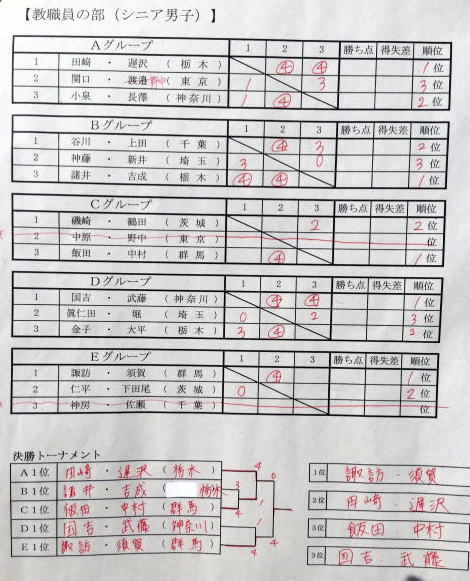 【教職員の部（シニア男子）】
Aグループ 1 2 3 勝ち点 得失差 順位
1 田﨑 ・ 遅沢 （ 栃木 ） ④ ④ 1 位
2 関口 ・ 渡邉 野中 （ 東京 ） 1 3 3 位
3 小泉 ・ 長澤 （ 神奈川 ） 1 ④ 2 位
Bグループ 1 2 3 勝ち点 得失差 順位
1 谷川 ・ 上田 （ 千葉 ） ④ 3 2 位
2 神藤 ・ 新井 （ 埼玉 ） 3 0 3 位
3 諸井 ・ 吉成 （ 栃木 ） ④ ④ 1 位
Cグループ 1 2 3 勝ち点 得失差 順位
1 磯崎 ・ 鶴田 （ 茨城 ） 2 2 位
2 中原 ・ 野中 （ 東京 ） 位
3 飯田 ・ 中村 （ 群馬 ） ④ 1 位
Dグループ 1 2 3 勝ち点 得失差 順位
1 国吉 ・ 武藤 （ 神奈川 ） ④ ④ 1 位
2 眞仁田 ・ 堀 （ 埼玉 ） 0 2 3 位
3 金子 ・ 大平 （ 栃木 ） 3 ④ 2 位
Eグループ 1 2 3 勝ち点 得失差 順位
1 諏訪 ・ 須賀 （ 群馬 ） ④ 1 位
2 仁平 ・ 下田尾 （ 茨城 ） 0 2 位
3 神房 ・ 佐瀬 （ 千葉 ） 位
決勝トーナメント
A1位 田﨑 ・ 遅沢 （ 栃木 ） 4 0
B1位 諸井 ・ 吉成 （ 栃木 3
C1位 飯田 ・ 中村 （ 群馬 ） 4 1
D1位 国吉 ・ 武藤 （ 神奈川 ） 1
E1位 諏訪 ・ 須賀 （ 群馬 ） 4 4
1位 諏訪 ・ 須賀
2位 田﨑 ・ 遅沢
3位 飯田 ・ 中村
3位 国吉 ・ 武藤